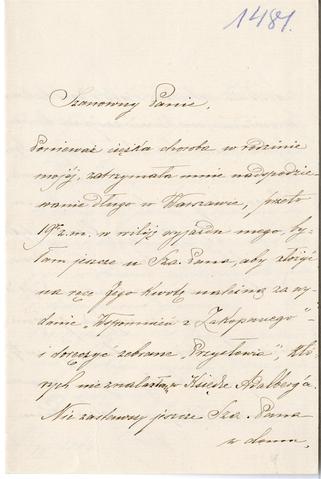 1481.
Szanowny Panie,
Ponieważ ciężka choroba w rodzinie
mojéj, zatrzymała mnie nadspodzie
wanie długo w Warszawie, przeto
19go z.m. w wilję wyjazdu mego, by-
łam jeszcze u Sza. Pana, aby złożyć
na ręce Jego kwotę należną za wy
danie „Wspomnień z Zakopanego"
i doręczyć zebrane „Przysłowia", któ
rych nie znalazłam w Księdze Adalberga.
Nie zastawszy jeszcze Sza. Pana
w domu,